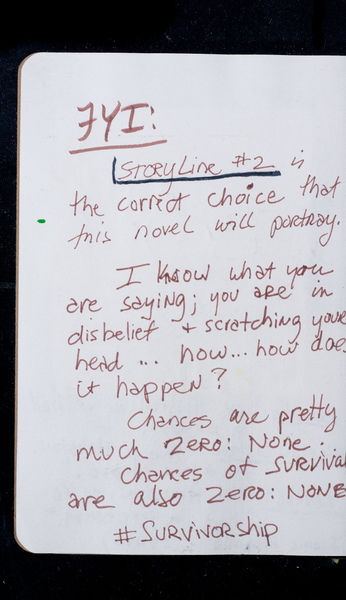 FYI:
STORYLINE #2 is
the correct choice that
this novel will portray.
I know what you
are saying; you are in
disbelief + scratching your
head ... how... how does
it happen?
Chances are pretty
much ZERO: NONE.
Chances of SURVIVAL
are also ZERO: NONE
#SURVIVORSHIP